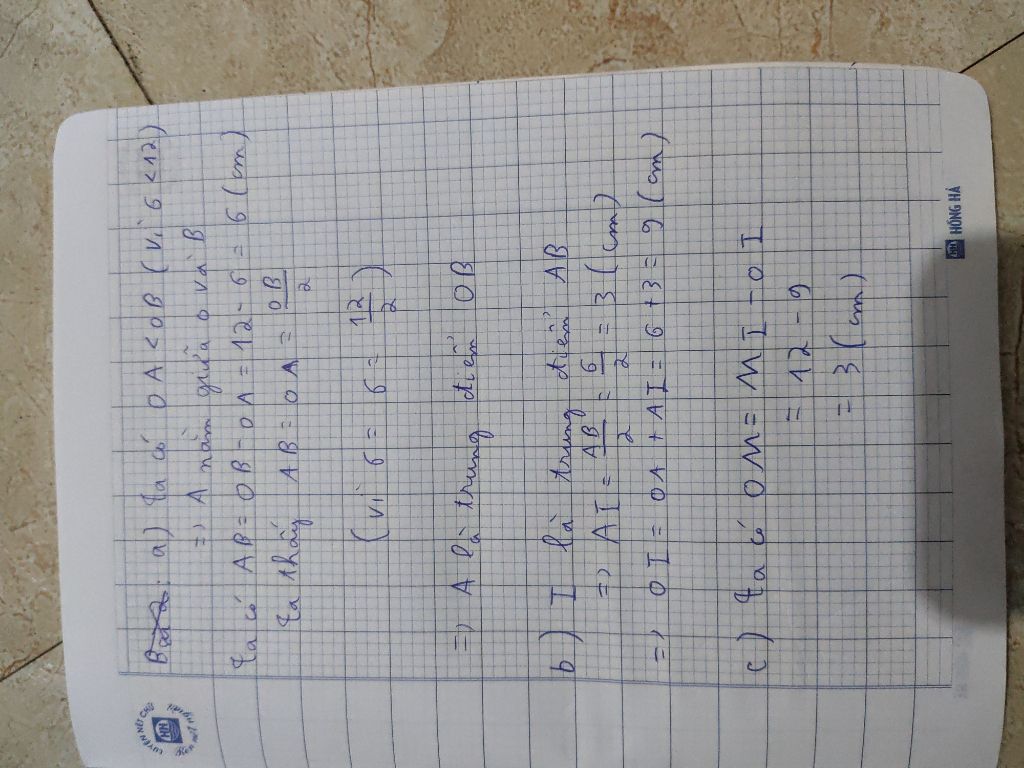 Bài 2: a) Ta có OA < OB (vì 6 < 12)
=> A nằm giữa O và B
Ta có AB = OB - OA = 12 - 6 = 6 (cm)
Ta thấy AB = OA = OB/2
(vì 6 = 6 = 12/2)
=> A là trung điểm OB
b) I là trung điểm AB
=> AI = AB/2 = 6/2 = 3 (cm)
=> OI = OA + AI = 6 + 3 = 9 (cm)
c) Ta có OM = MI - OI
= 12 - 9
= 3 (cm)
LUYỆN NÉT CHỮ
HH
Rèn nết người
HH HỒNG HÀ